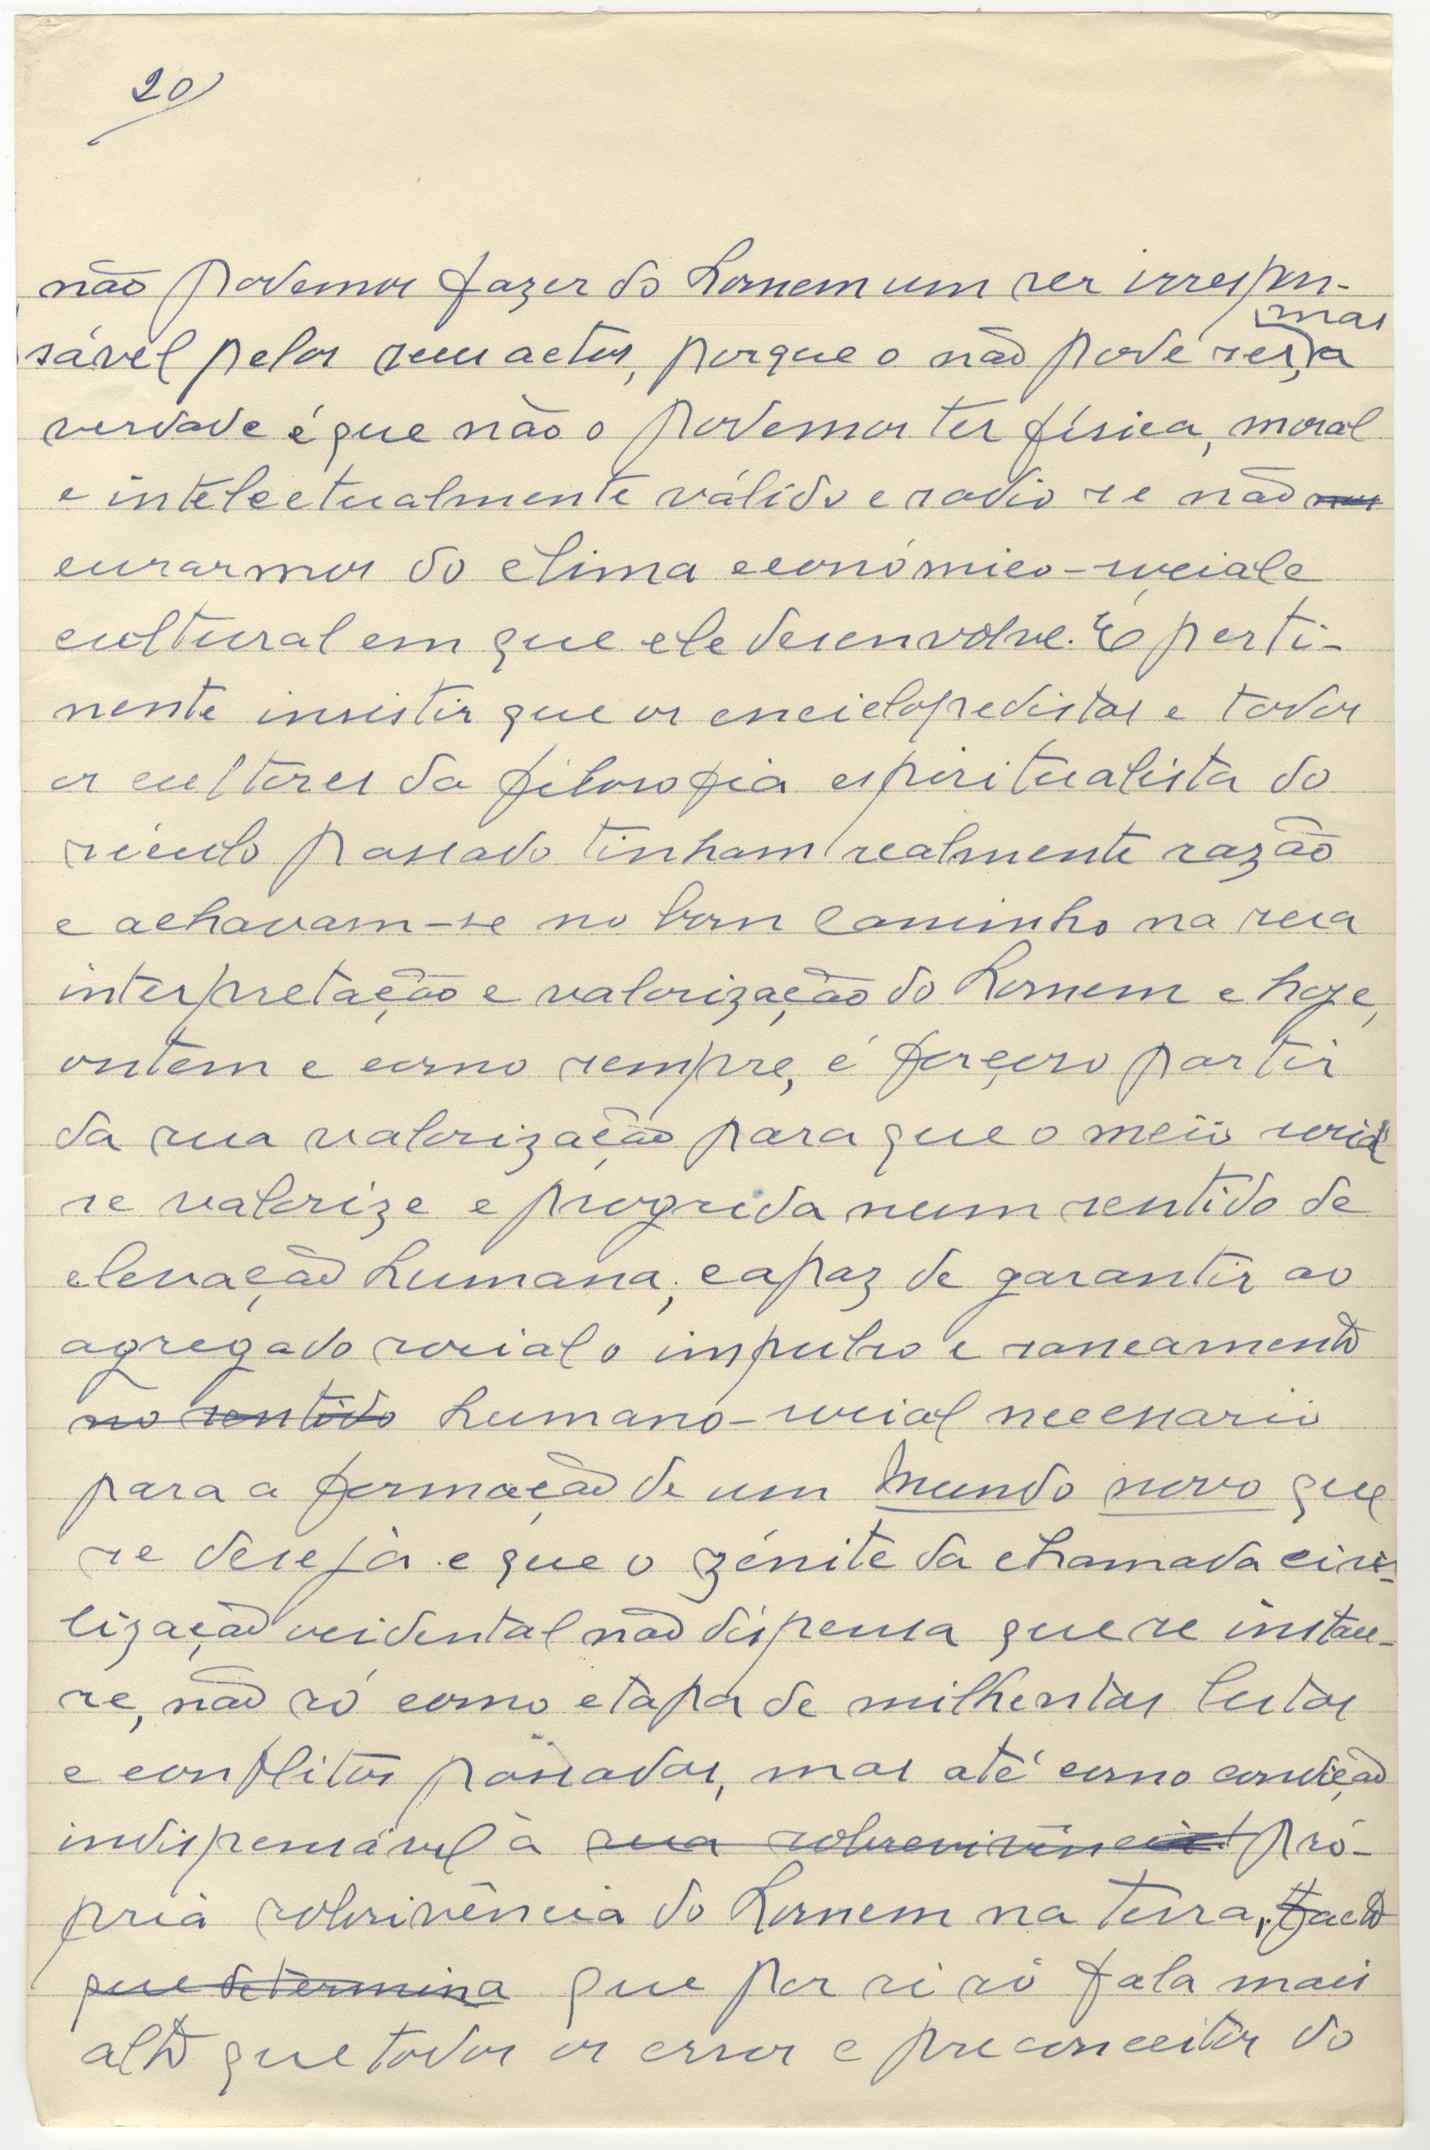 20
não podemos fazer do homem um ser irrespon-
mas
sável pelos seus actos, porque o não pode ser, a
verdade é que não o podemos ter física, moral
e intelectualmente válido e sadio se não nos
curarmos do clima económico-social e
cultural em que ele desenvolve. É perti-
nente insistir que os enciclopedistas e todos
os cultores da filosofia espiritualista do
século passado tinham realmente razão
e achavam-se no bom caminho na sua
interpretação e valorização do homem e hoje,
ontem e como sempre, é forçoso partir
da sua valorização para que o meio social
se valorize e progrida num sentido de
elevação humana, capaz de garantir ao
agregado social o impulso e saneamento
no sentido humano-social necessario
para a formação de um Mundo novo que
se deseja e que o zénite da chamada civi-
lização ocidental não dispensa que se instau-
re, não só como etapa de milhentas lutas
e conflitos passados, mas até como condição
indispensável à sua sobrevivência! pró-
pria sobrivência do homem na terra, facto
que determina que por si só fala mais
alto que todos os erros e preconceitos do